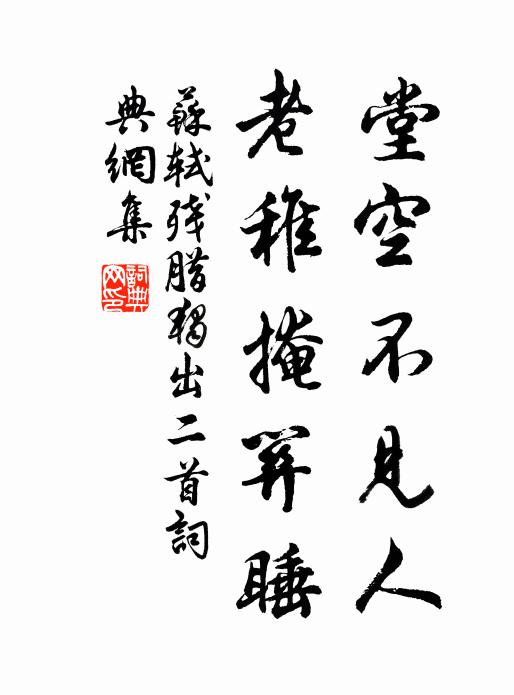 堂空不見人
老稚掩關睡
蘇軾残腊獨出二首詞
典網集
詞典网印